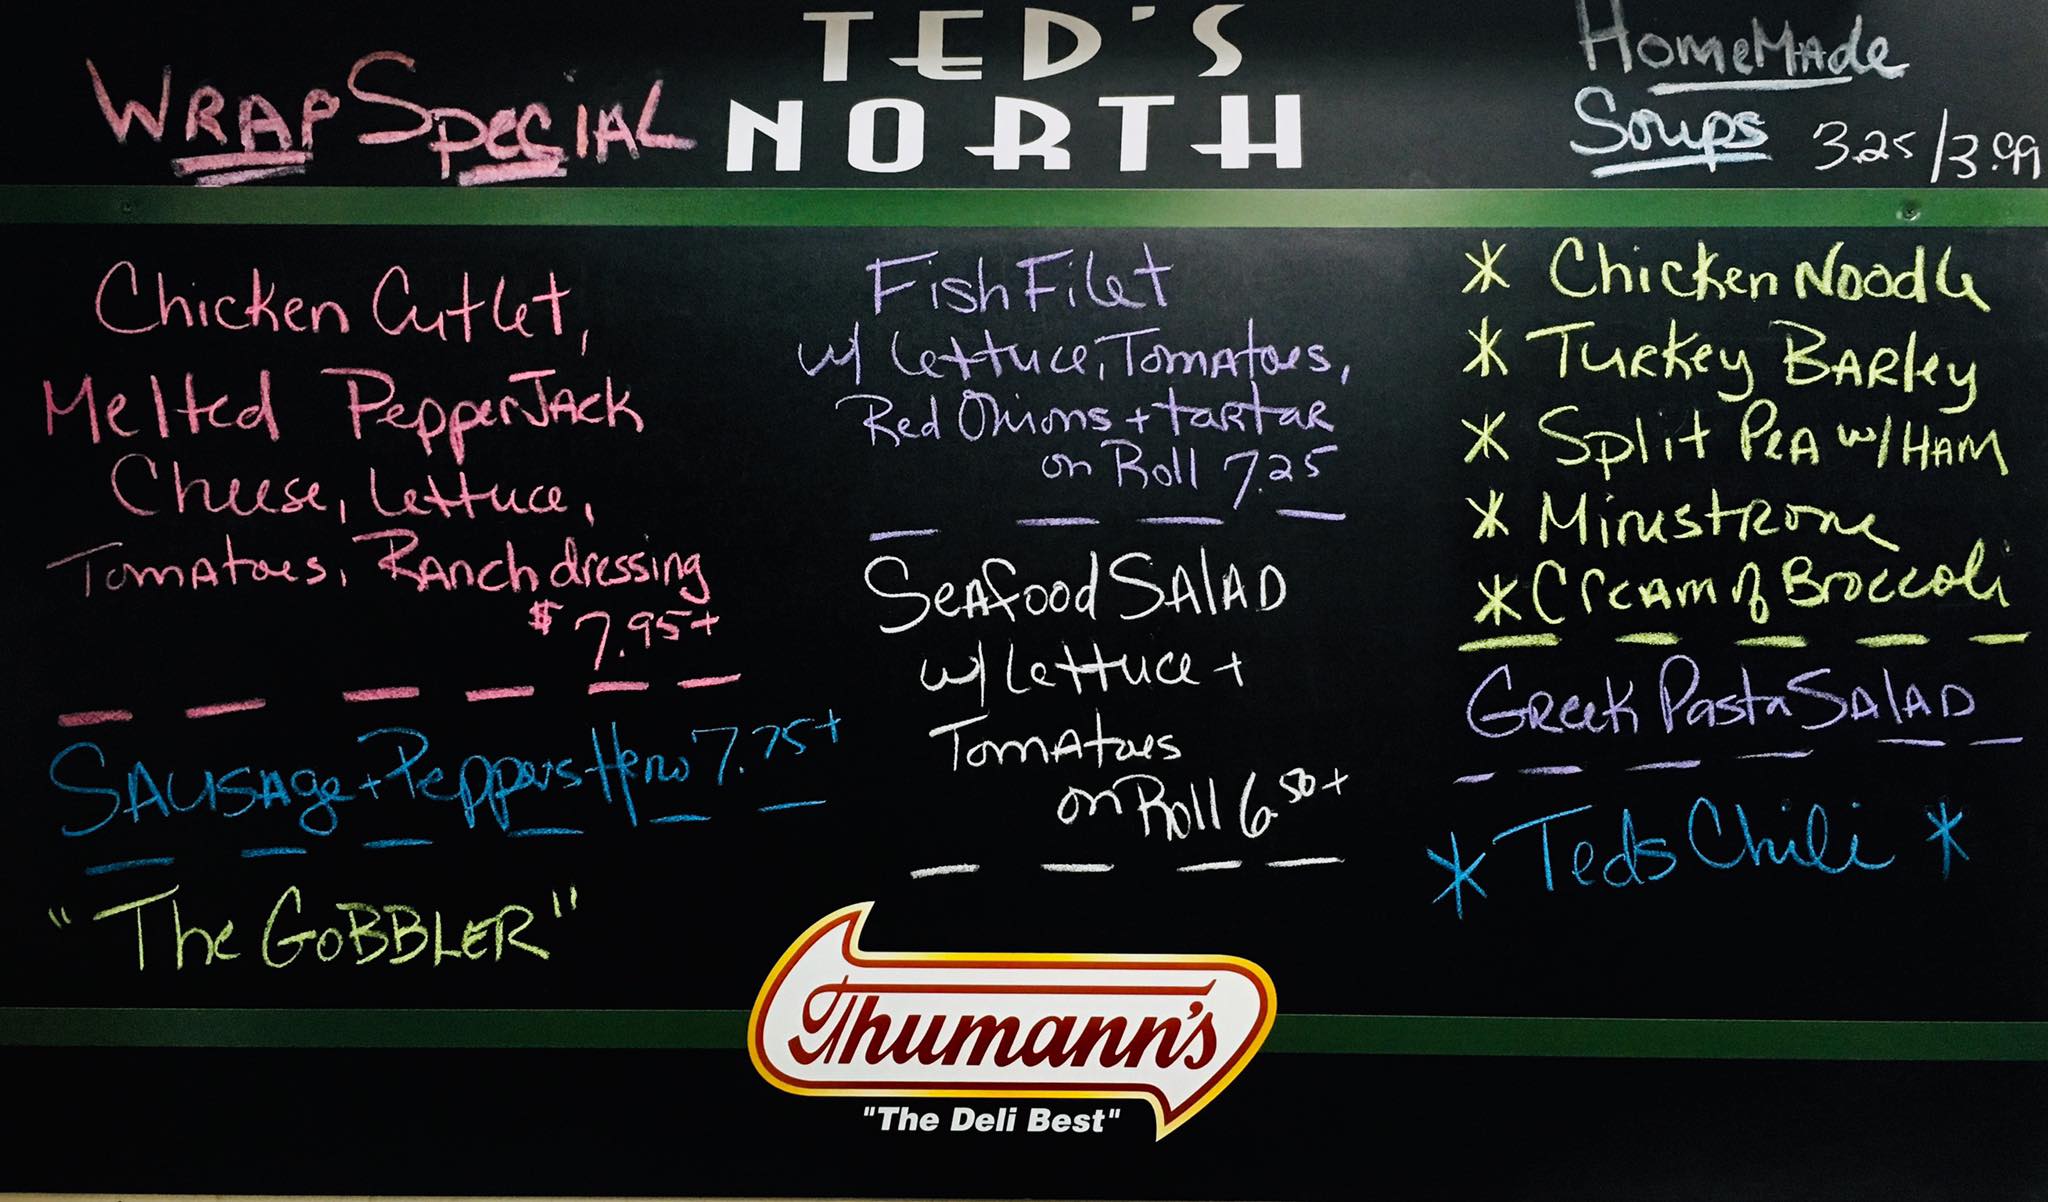 TED'S
NORTH
WRAP SPECIAL
Chicken Cutlet,
Melted PepperJack
Cheese, Lettuce,
Tomatoes, Ranch dressing
$7.95+
Sausage + Peppers Hero 7.75+
"The GoBBLER"
Fish Filet
w/ Lettuce, Tomatoes,
Red Onions + tartar
on Roll 7.25
Seafood Salad
w/ Lettuce +
Tomatoes
on Roll 6.50+
HomeMade
Soups 3.25/3.99
* Chicken Noodle
* Turkey Barley
* Split Pea w/ Ham
* Minestrone
* Cream of Broccoli
Greek Pasta Salad
* Teds Chili *
Thumann's
"The Deli Best"